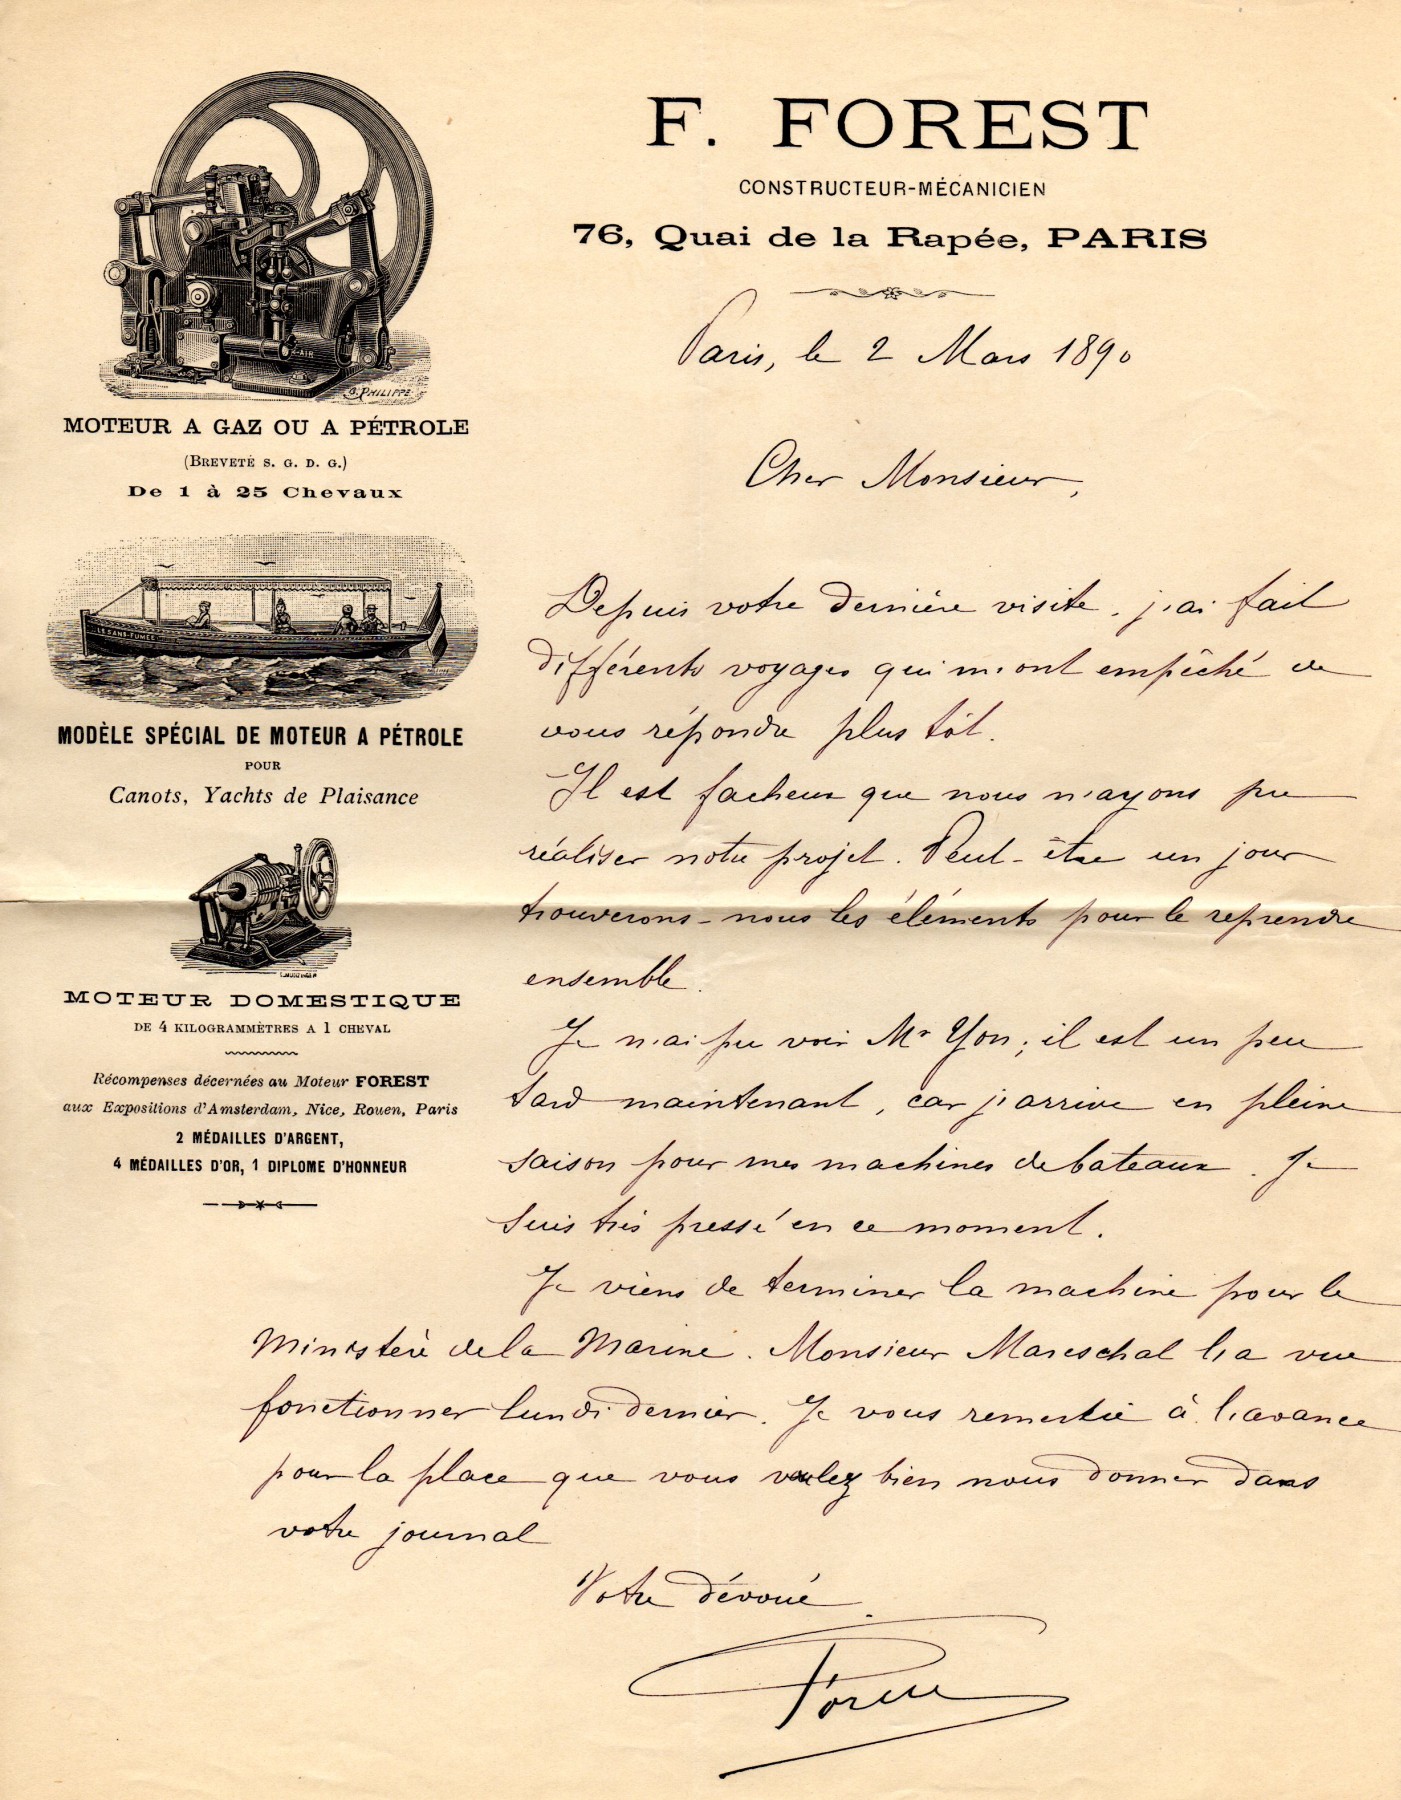 F. FOREST
CONSTRUCTEUR-MÉCANICIEN
76, Quai de la Rapée, PARIS
AIR
G. PHILIPPE
MOTEUR A GAZ OU A PÉTROLE
(BREVETÉ S. G. D. G.)
De 1 à 25 Chevaux
LE SANS-FUMÉE
MODÈLE SPÉCIAL DE MOTEUR A PÉTROLE
POUR
Canots, Yachts de Plaisance
MOTEUR DOMESTIQUE
DE 4 KILOGRAMMÈTRES A 1 CHEVAL
Récompenses décernées au Moteur FOREST
aux Expositions d'Amsterdam, Nice, Rouen, Paris
2 MÉDAILLES D'ARGENT,
4 MÉDAILLES D'OR, 1 DIPLOME D'HONNEUR
Paris, le 2 Mars 1890
Cher Monsieur,
Depuis votre dernière visite, j'ai fait
différents voyages qui m'ont empêché de
vous répondre plus tôt.
Il est facheux que nous n'ayons pu
réaliser notre projet. Peut-être un jour
trouverons-nous les éléments pour le reprendre
ensemble.
Je n'ai pu voir Mr Yon; il est un peu
tard maintenant, car j'arrive en pleine
saison pour mes machines de bateaux. Je
suis très pressé en ce moment.
Je viens de terminer la machine pour le
Ministère de la Marine. Monsieur Mareschal l'a vue
fonctionner lundi dernier. Je vous remercie à l'avance
pour la place que vous voulez bien nous donner dans
votre journal
Votre dévoué.
Forest